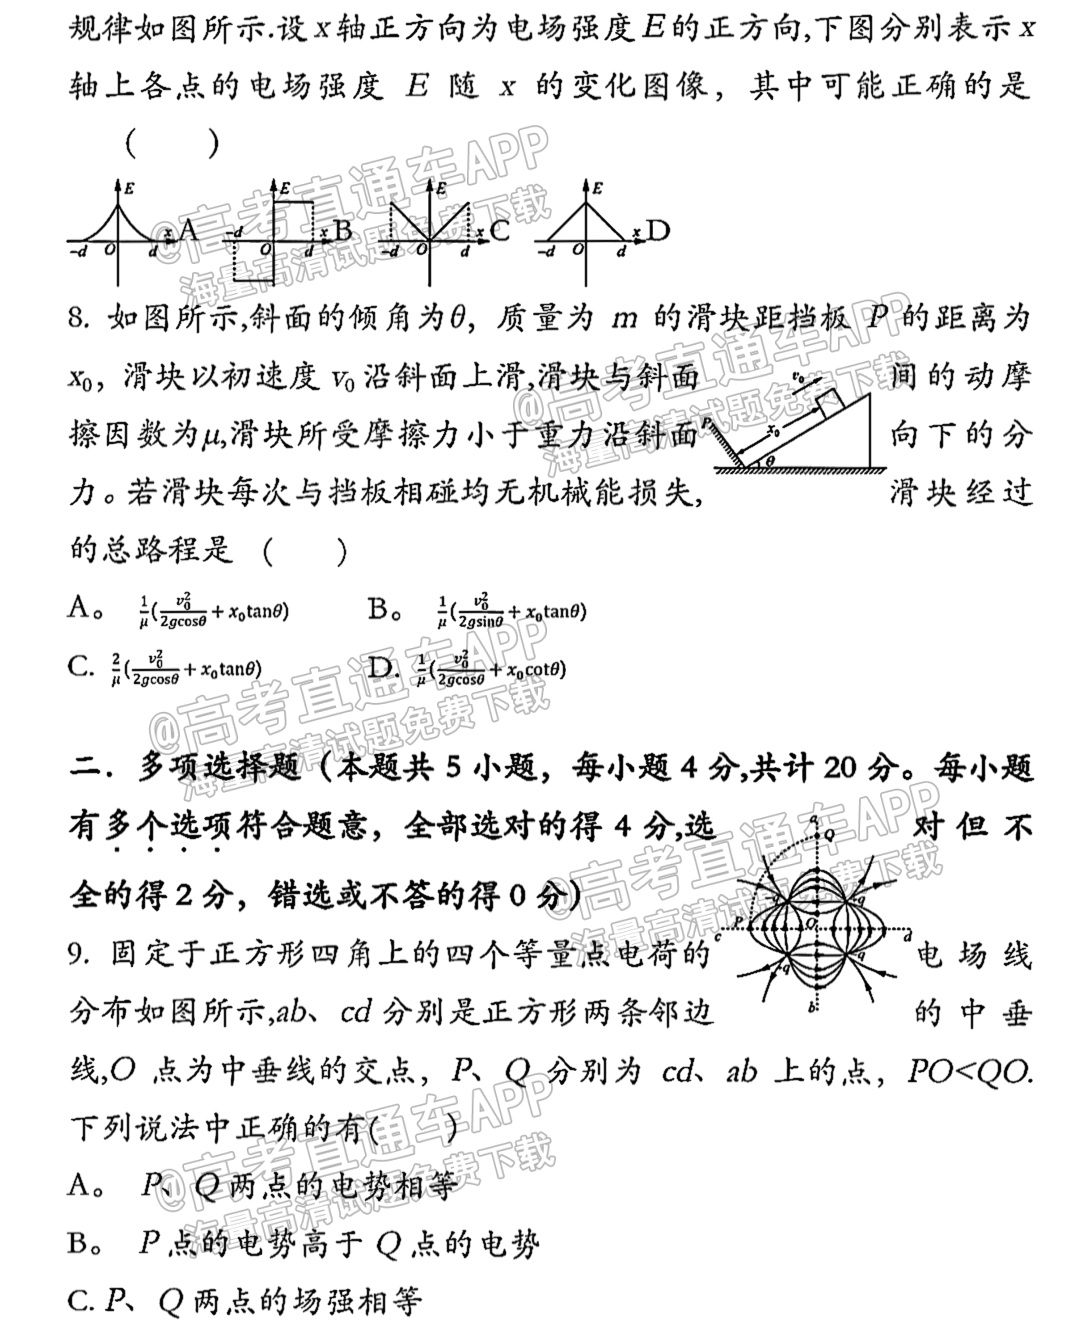 规律如图所示.设x轴正方向为电场强度E的正方向,下图分别表示x
轴上各点的电场强度 E 随 x 的变化图像，其中可能正确的是
( )
E E E E
-d O d x A -d O d x B -d O d x C -d O d x D
8. 如图所示,斜面的倾角为θ，质量为 m 的滑块距挡板 P 的距离为
x₀，滑块以初速度 v₀ 沿斜面上滑,滑块与斜面间的动摩
擦因数为μ,滑块所受摩擦力小于重力沿斜面向下的分
力。若滑块每次与挡板相碰均无机械能损失,滑块经过
v₀
P x₀ θ
的总路程是 ( )
A。 1/μ(v₀²/2gcosθ + x₀tanθ) B。 1/μ(v₀²/2gsinθ + x₀tanθ)
C. 2/μ(v₀²/2gcosθ + x₀tanθ) D. 1/μ(v₀²/2gcosθ + x₀cotθ)
二．多项选择题（本题共 5 小题，每小题 4 分,共计 20 分。每小题
有多个选项符合题意，全部选对的得 4 分,选对但不
全的得 2 分，错选或不答的得 0 分）
a Q
-q q
c P O d
q -q
b
9. 固定于正方形四角上的四个等量点电荷的电场线
分布如图所示,ab、cd 分别是正方形两条邻边的中垂
线,O 点为中垂线的交点，P、Q 分别为 cd、ab 上的点，PO<QO.
下列说法中正确的有( )
A。 P、Q 两点的电势相等
B。 P 点的电势高于 Q 点的电势
C. P、Q 两点的场强相等
@高考直通车APP
海量高清试题免费下载
@高考直通车APP
海量高清试题免费下载
@高考直通车APP
海量高清试题免费下载
@高考直通车APP
海量高清试题免费下载
@高考直通车APP
海量高清试题免费下载